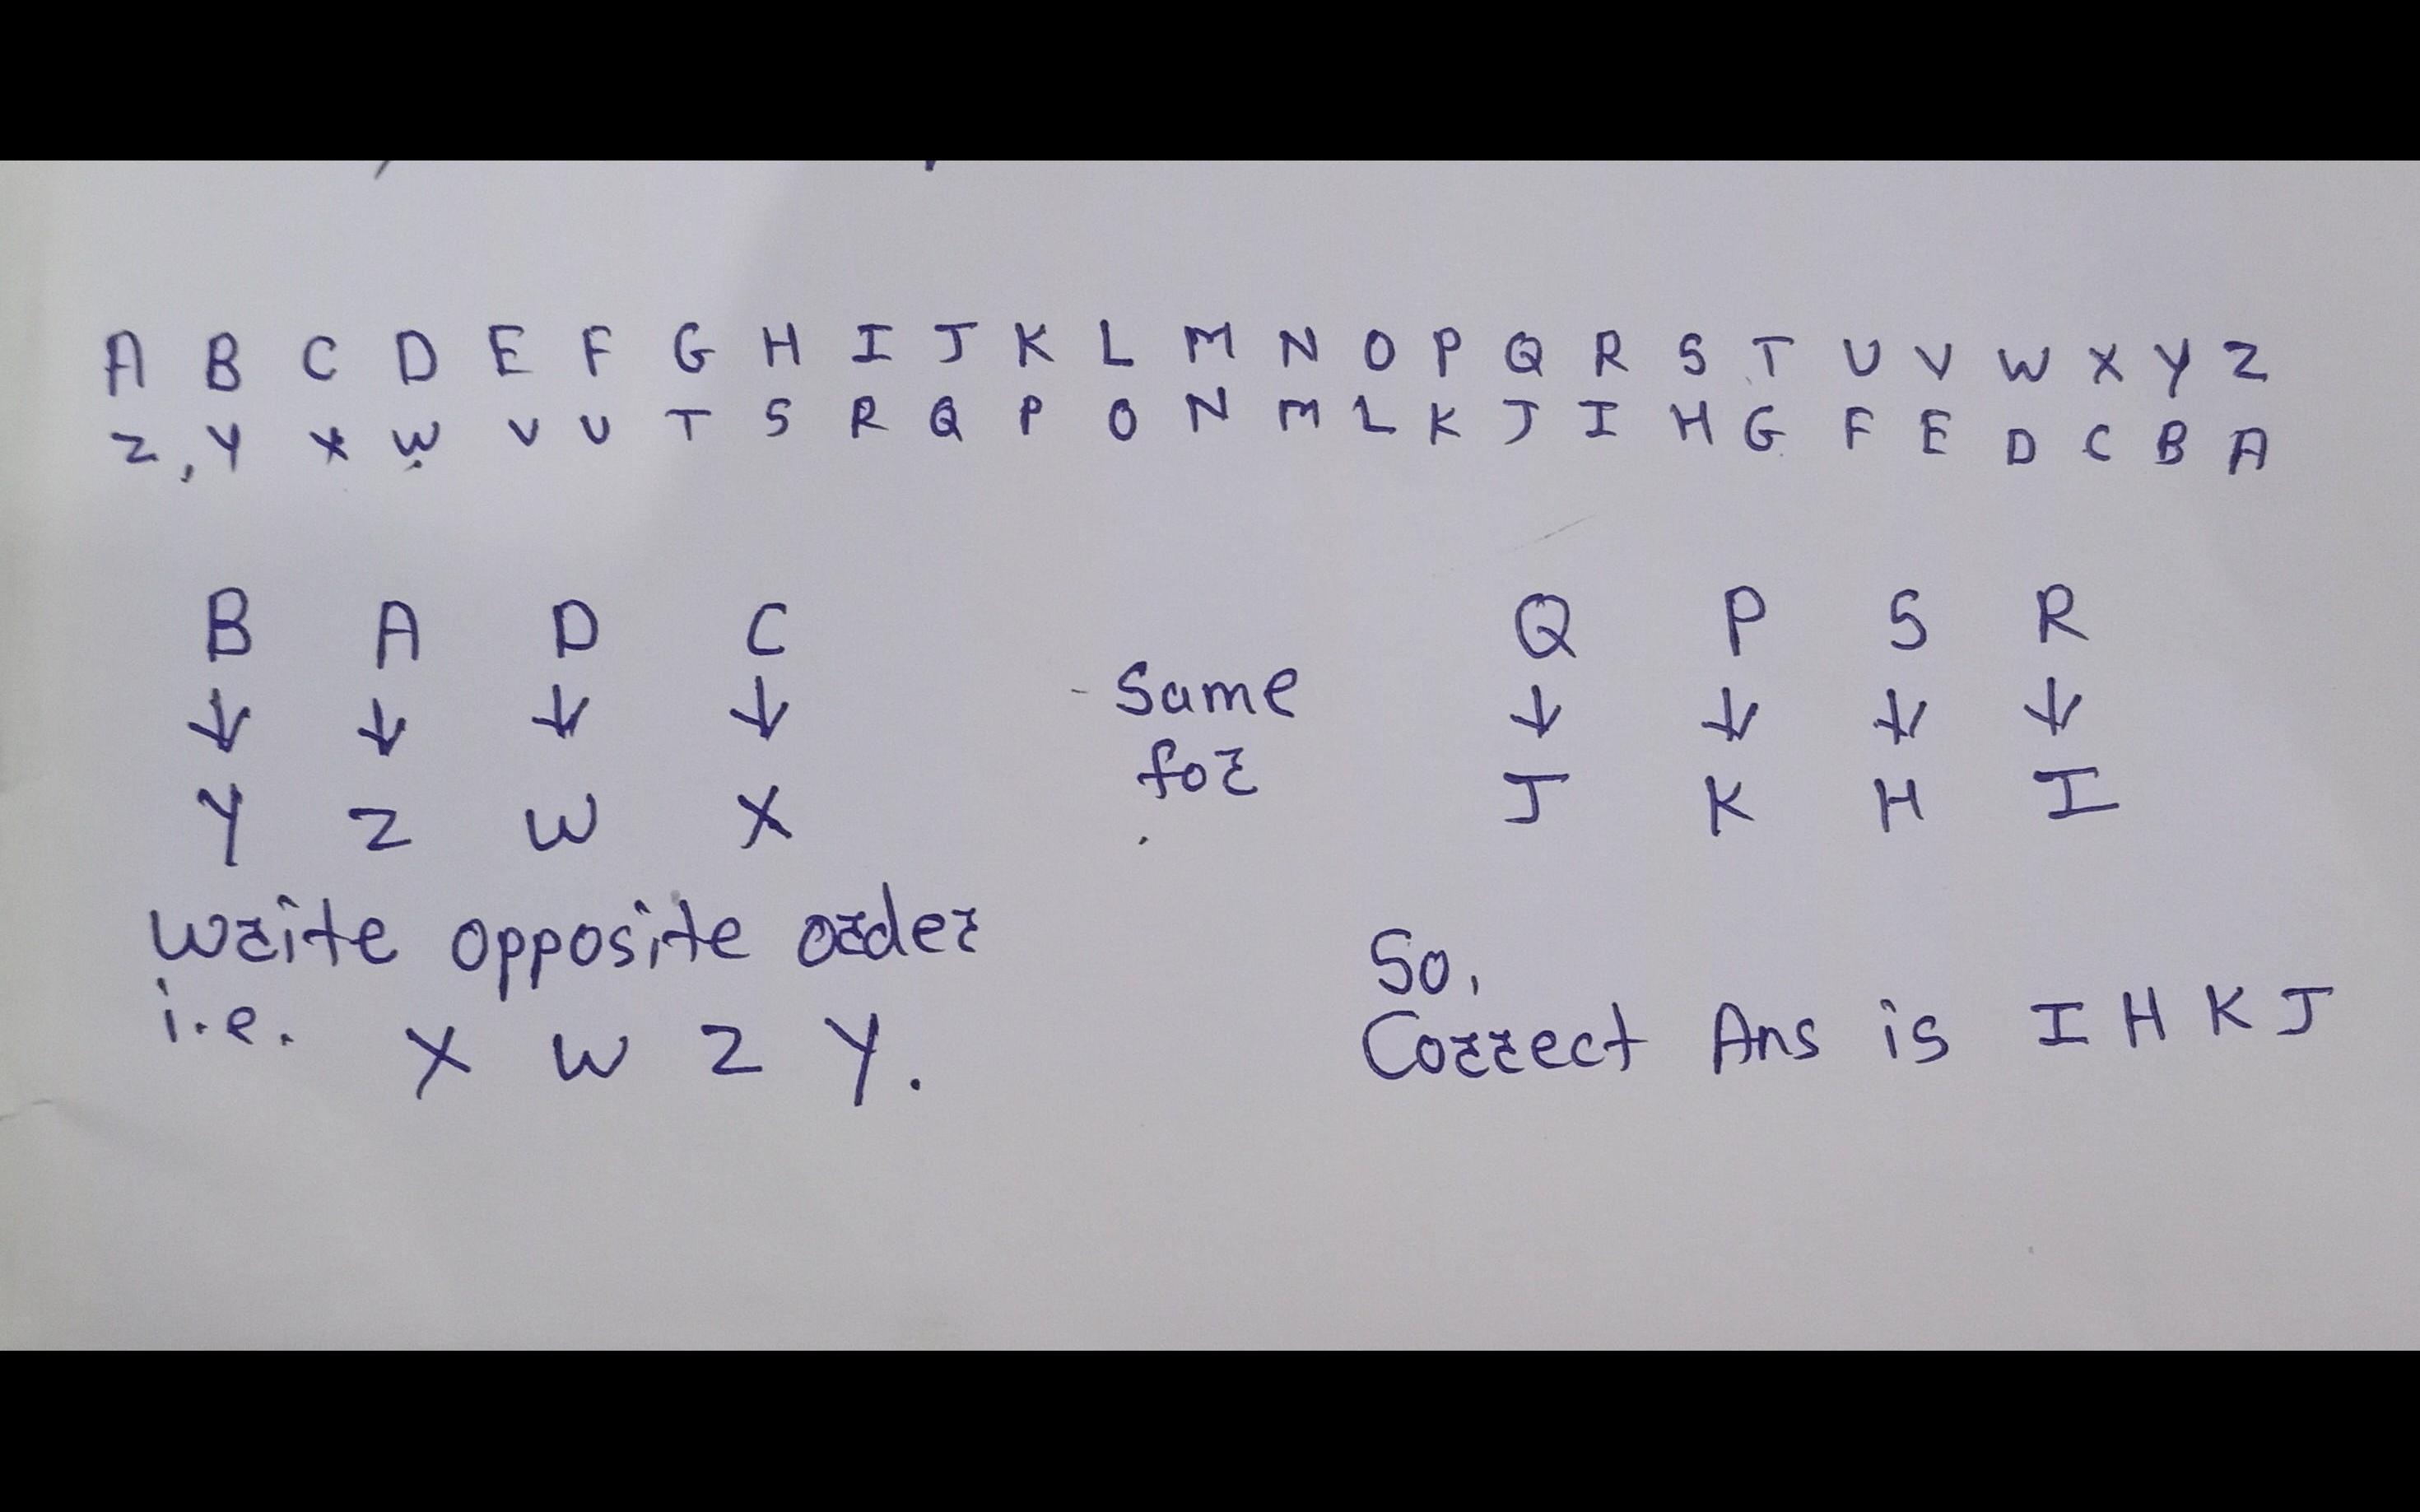 A B C D E F G H I J K L M N O P Q R S T U V W X Y Z
Z, Y X W V U T S R Q P O N M L K J I H G F E D C B A
B A D C
↓ ↓ ↓ ↓
Y Z W X
write opposite order
i.e. X W Z Y.
- Same
for
Q P S R
↓ ↓ ↓ ↓
J K H I
So,
Correct Ans is I H K J